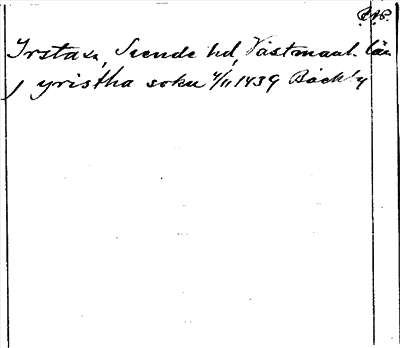 Irsta sn, Siende hd, Västmanl. län
j yristha sokn 4/11 1439 Bäckby